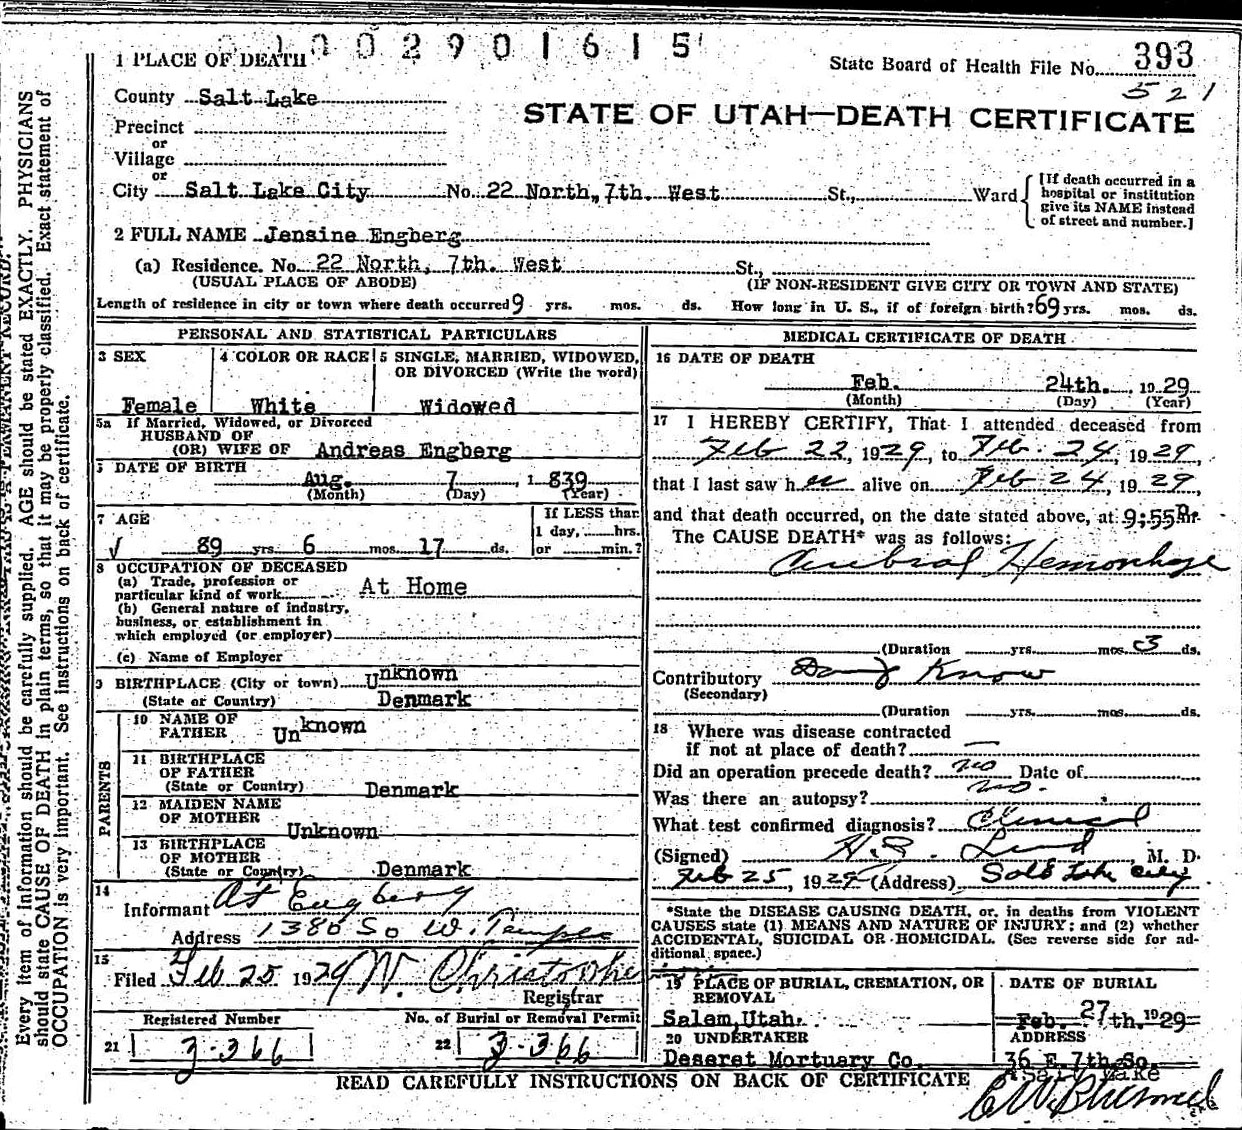 1 0 0 2 9 0 1 6 1 5
1 PLACE OF DEATH
State Board of Health File No. 393
521
County Salt Lake
STATE OF UTAH—DEATH CERTIFICATE
Precinct
or
Village
or
City Salt Lake City No. 22 North, 7th. West St., Ward
[If death occurred in a hospital or institution give its NAME instead of street and number.]
2 FULL NAME Jensine Engberg
(a) Residence. No. 22 North, 7th. West St.,
(USUAL PLACE OF ABODE) (IF NON-RESIDENT GIVE CITY OR TOWN AND STATE)
Length of residence in city or town where death occurred 9 yrs. mos. ds. How long in U. S., if of foreign birth? 69 yrs. mos. ds.
PERSONAL AND STATISTICAL PARTICULARS
3 SEX
Female
4 COLOR OR RACE
White
5 SINGLE, MARRIED, WIDOWED,
OR DIVORCED (Write the word)
Widowed
5a If Married, Widowed, or Divorced
HUSBAND OF
(OR) WIFE OF Andreas Engberg
DATE OF BIRTH
Aug. 7 1839
(Month) (Day) (Year)
7 AGE
89 yrs. 6 mos. 17 ds.
If LESS than
1 day, hrs.
or min.?
8 OCCUPATION OF DECEASED
(a) Trade, profession or
particular kind of work At Home
(b) General nature of industry,
business, or establishment in
which employed (or employer)
(c) Name of Employer
9 BIRTHPLACE (City or town) Unknown
(State or Country) Denmark
PARENTS
10 NAME OF
FATHER Unknown
11 BIRTHPLACE
OF FATHER
(State or Country) Denmark
12 MAIDEN NAME
OF MOTHER
Unknown
13 BIRTHPLACE
OF MOTHER
(State or Country) Denmark
14
Informant Engberg
Address 1386 So W. Temple
15
Filed Feb 25 1929 W. Christophe
Registrar
Registered Number
21 3-366
No. of Burial or Removal Permit
22 3-366
MEDICAL CERTIFICATE OF DEATH
16 DATE OF DEATH
Feb. 24th. 1929
(Month) (Day) (Year)
17 I HEREBY CERTIFY, That I attended deceased from
Feb 22, 1929, to Feb. 24, 1929,
that I last saw her alive on Feb 24, 1929,
and that death occurred, on the date stated above, at 9:55
The CAUSE DEATH* was as follows:
Cerebral Hemorrhage
(Duration yrs. mos. 3 ds.
Contributory Know
(Secondary)
(Duration yrs. mos. ds.
18 Where was disease contracted
if not at place of death? —
Did an operation precede death? no Date of
Was there an autopsy? no.
What test confirmed diagnosis? Clinical
(Signed) Lund, M. D.
Feb 25, 1929 (Address) Salt Lake City
*State the DISEASE CAUSING DEATH, or, in deaths from VIOLENT
CAUSES state (1) MEANS AND NATURE OF INJURY; and (2) whether
ACCIDENTAL, SUICIDAL OR HOMICIDAL. (See reverse side for ad-
ditional space.)
19 PLACE OF BURIAL, CREMATION, OR
REMOVAL
Salem, Utah.
DATE OF BURIAL
Feb. 27th. 1929
20 UNDERTAKER
Deseret Mortuary Co.
ADDRESS
36 E. 7th. So.
Salt Lake
READ CAREFULLY INSTRUCTIONS ON BACK OF CERTIFICATE
Every item of information should be carefully supplied. AGE should be stated EXACTLY. PHYSICIANS
should state CAUSE OF DEATH in plain terms, so that it may be properly classified. Exact statement of
OCCUPATION is very important. See instructions on back of certificate.